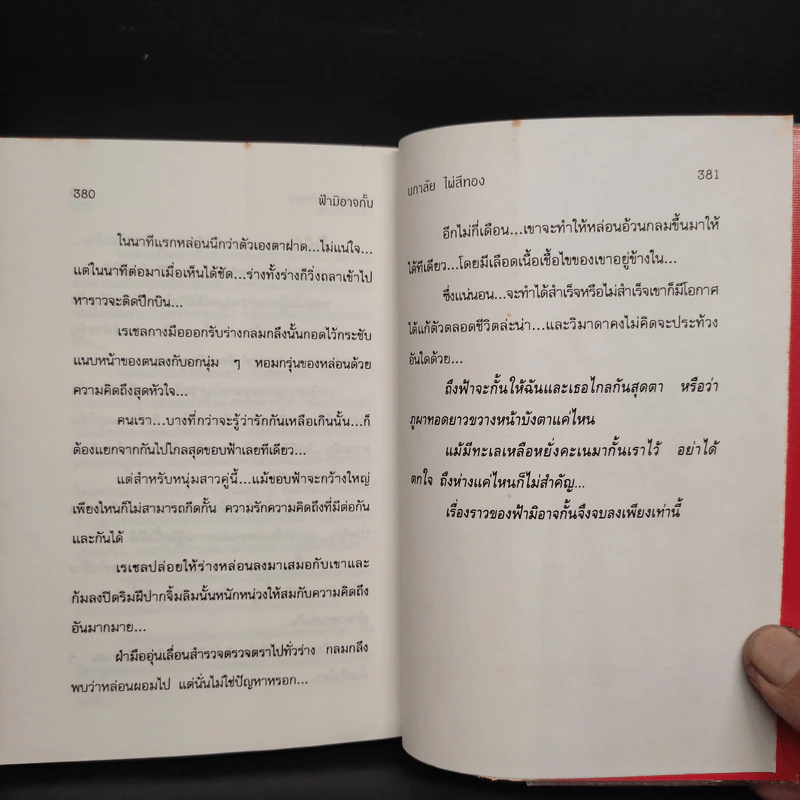 380
ฟ้ามิอาจกั้น
ในนาทีแรกหล่อนนึกว่าตัวเองตาฝาด...ไม่แน่ใจ...
แต่ในนาทีต่อมาเมื่อเห็นได้ชัด...ร่างทั้งร่างก็วิ่งถลาเข้าไป
หาราวจะติดปีกบิน...
เรเชลกางมือออกรับร่างกลมกลึงนั้นกอดไว้กระชับ
แนบหน้าของตนลงกับอกนุ่ม ๆ หอมกรุ่นของหล่อนด้วย
ความคิดถึงสุดหัวใจ...
คนเรา...บางทีกว่าจะรู้ว่ารักกันเหลือเกินนั้น...ก็
ต้องแยกจากกันไปไกลสุดขอบฟ้าเลยทีเดียว...
แต่สำหรับหนุ่มสาวคู่นี้...แม้ขอบฟ้าจะกว้างใหญ่
เพียงไหนก็ไม่สามารถกีดกั้น ความรักความคิดถึงที่มีต่อกัน
และกันได้
เรเชลปล่อยให้ร่างหล่อนลงมาเสมอกับเขาและ
ก้มลงปิดริมฝีปากจิ้มลิมนั้นหนักหน่วงให้สมกับความคิดถึง
อันมากมาย...
ฝ่ามืออุ่นเลื่อนสำรวจตรวจตราไปทั่วร่าง กลมกลึง
พบว่าหล่อนผอมไป แต่นั่นไม่ใช่ปัญหาหรอก...
นภาลัย ไผ่สีทอง
381
อีกไม่กี่เดือน...เขาจะทำให้หล่อนอ้วนกลมขึ้นมาให้
ได้ทีเดียว...โดยมีเลือดเนื้อเชื้อไขของเขาอยู่ข้างใน...
ซึ่งแน่นอน...จะทำได้สำเร็จหรือไม่สำเร็จเขาก็มีโอกาส
ได้แก้ตัวตลอดชีวิตล่ะน่า...และวิมาดาคงไม่คิดจะประท้วง
อันใดด้วย...
ถึงฟ้าจะกั้นให้ฉันและเธอไกลกันสุดตา หรือว่า
ภูผาทอดยาวขวางหน้าบังตาแค่ไหน
แม้มีทะเลเหลือหยั่งคะเนมากั้นเราไว้ อย่าได้
ตกใจ ถึงห่างแค่ไหนก็ไม่สำคัญ...
เรื่องราวของฟ้ามิอาจกั้นจึงจบลงเพียงเท่านี้